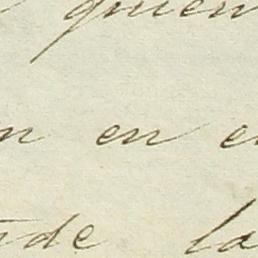 quien
n en e
de la